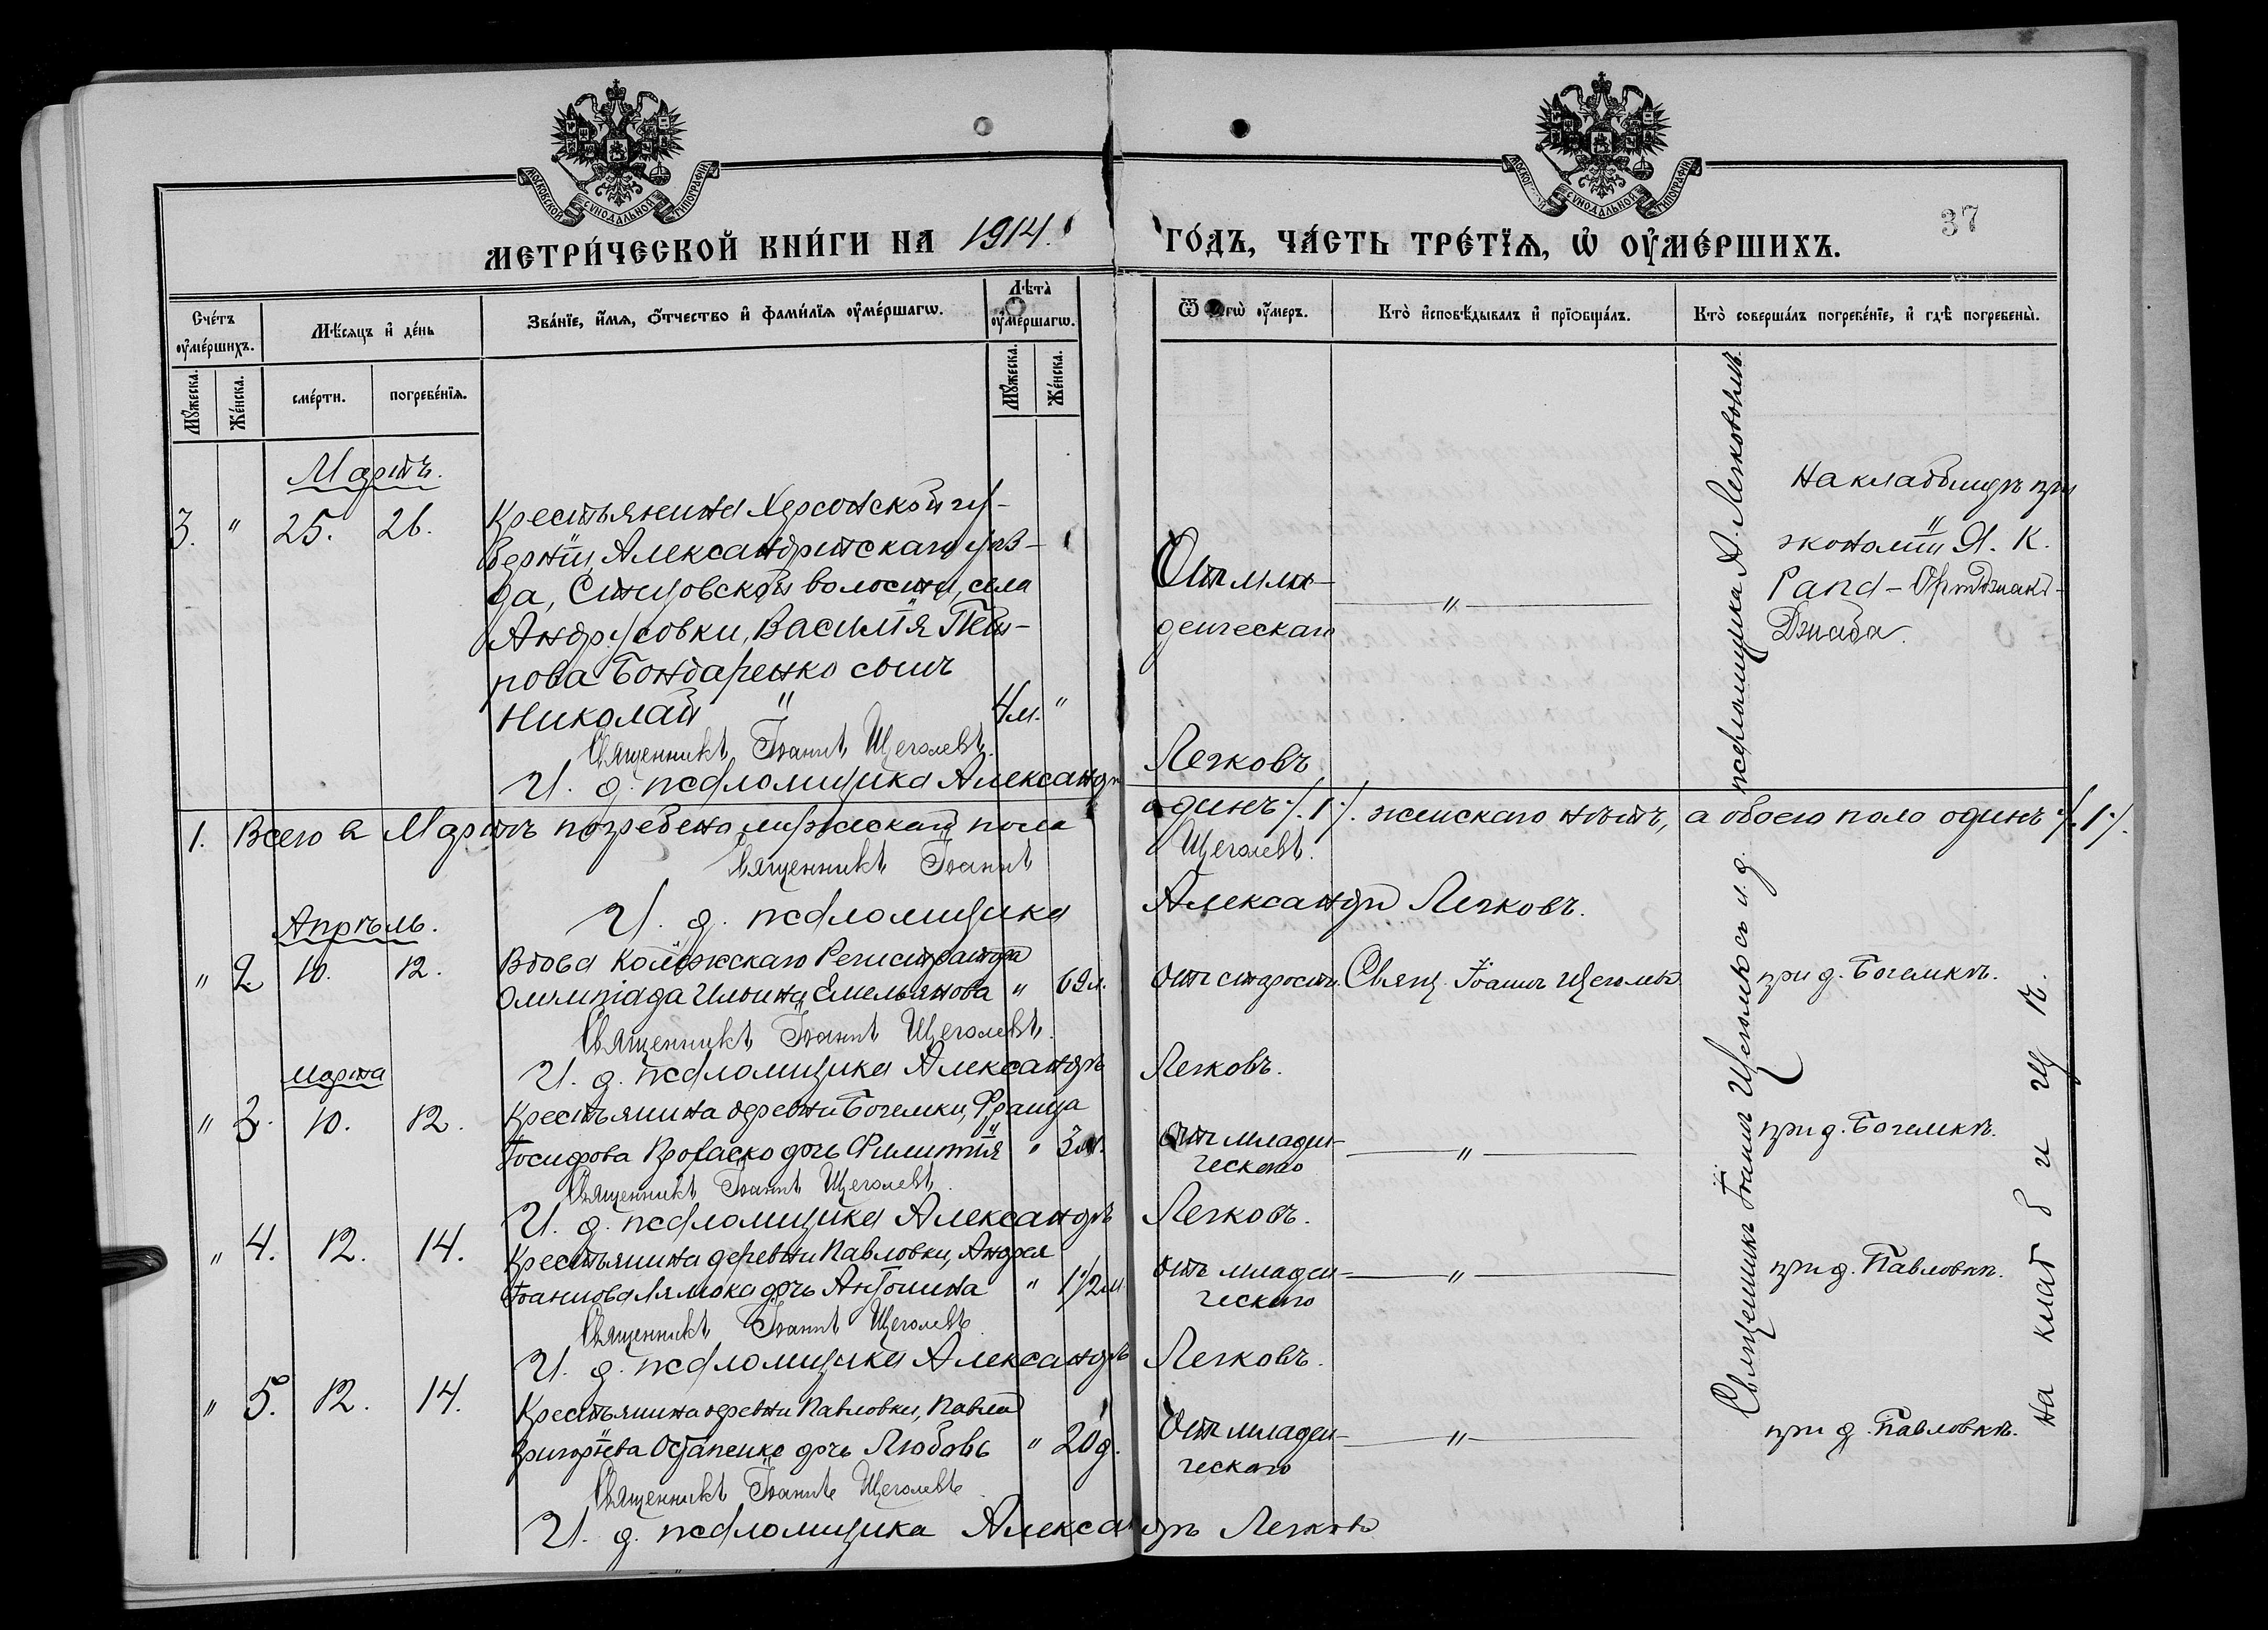 МОСКОВСКОЙ СѴНОДАЛЬНОЙ ТИПОГРАФІИ
МОСКОВСКОЙ СѴНОДАЛЬНОЙ ТИПОГРАФІИ
37
МЕТРИ́ЧЕСКОЙ КНИ́ГИ НА 1914. ГО́ДЪ, ЧА́СТЬ ТРЕ́ТЇѦ, Ѡ ОУ҆МЕ́РШИХЪ.
Сче́тъ оумершихъ.
Мѣсяцъ и де́нь
Зва́нїе, и҆́мѧ, ѻ҆́тчество и҆ фами́лїѧ оумершагѡ.
Лѣта̀ оумершагѡ.
Ѿ чегѡ̀ оу҆́меръ.
Кто̀ и҆сповѣ́дывалъ и҆ прїѡбща́лъ.
Кто̀ соверша́лъ погребе́нїе, и҆ гдѣ̀ погребены̀.
Мꙋ́жеска.
Же́нска.
сме́рти.
погребе́нїѧ.
Мꙋ́жеска.
Же́нска.
Мартъ.
3. " 25. 26.
Крестьянина Херсонской гу-
берніи, Александрійскаго уѣз-
да, волости, села
Андрусовки, Василія Пет-
рова Бондаренко сынъ
Николай " 4 м. "
Отъ мла-
денческаго
"
на кладбищѣ при
экономіи Я. К.
Рапд-
Джаба.
Священникъ Іоаннъ Щеголевъ.
И. д. псаломщика Александръ Легковъ
1. Всего въ Мартѣ погребено мужескаго пола одинъ /.1/. женскаго нѣтъ, а обоего пола одинъ /.1/.
Священникъ Іоаннъ Щеголевъ.
И. д. псаломщика Александръ Легковъ.
Апрѣль.
" 2 10. 12.
Вдова Колежскаго Регистратора
Олимпіада Ильина Емельянова " 69 л.
Отъ старости. Свящ. Іоаннъ Щеголевъ. при д. Богемкѣ.
Священникъ Іоаннъ Щеголевъ.
И. д. псаломщика Александръ Легковъ.
Марта
" 3. 10. 12.
Крестьянина деревни Богемки, Франца
Іосифова дочь "
Отъ младен-
ческаго
"
при д. Богемкѣ.
Священникъ Іоаннъ Щеголевъ.
И. д. псаломщика Александръ Легковъ.
" 4. 12. 14.
Крестьянина деревни Павловки, Андрея
Іоаннова Лямока дочь Антонина " 1 1/2 м
Отъ младен-
ческаго
"
при д. Павловкѣ.
Священникъ Іоаннъ Щеголевъ
И. д. псаломщика Александръ Легковъ.
" 5. 12. 14.
Крестьянина деревни Павловки, Павла
Григоріева Остапенко дочь Любовь " 20 д.
Отъ младен-
ческаго
"
при д. Павловкѣ.
Священникъ Іоаннъ Щеголевъ
И. д. псаломщика Александръ Легковъ
Священникъ Іоаннъ Щеголевъ съ и. д. псаломщика А. Легковымъ.
на кладбищѣ.